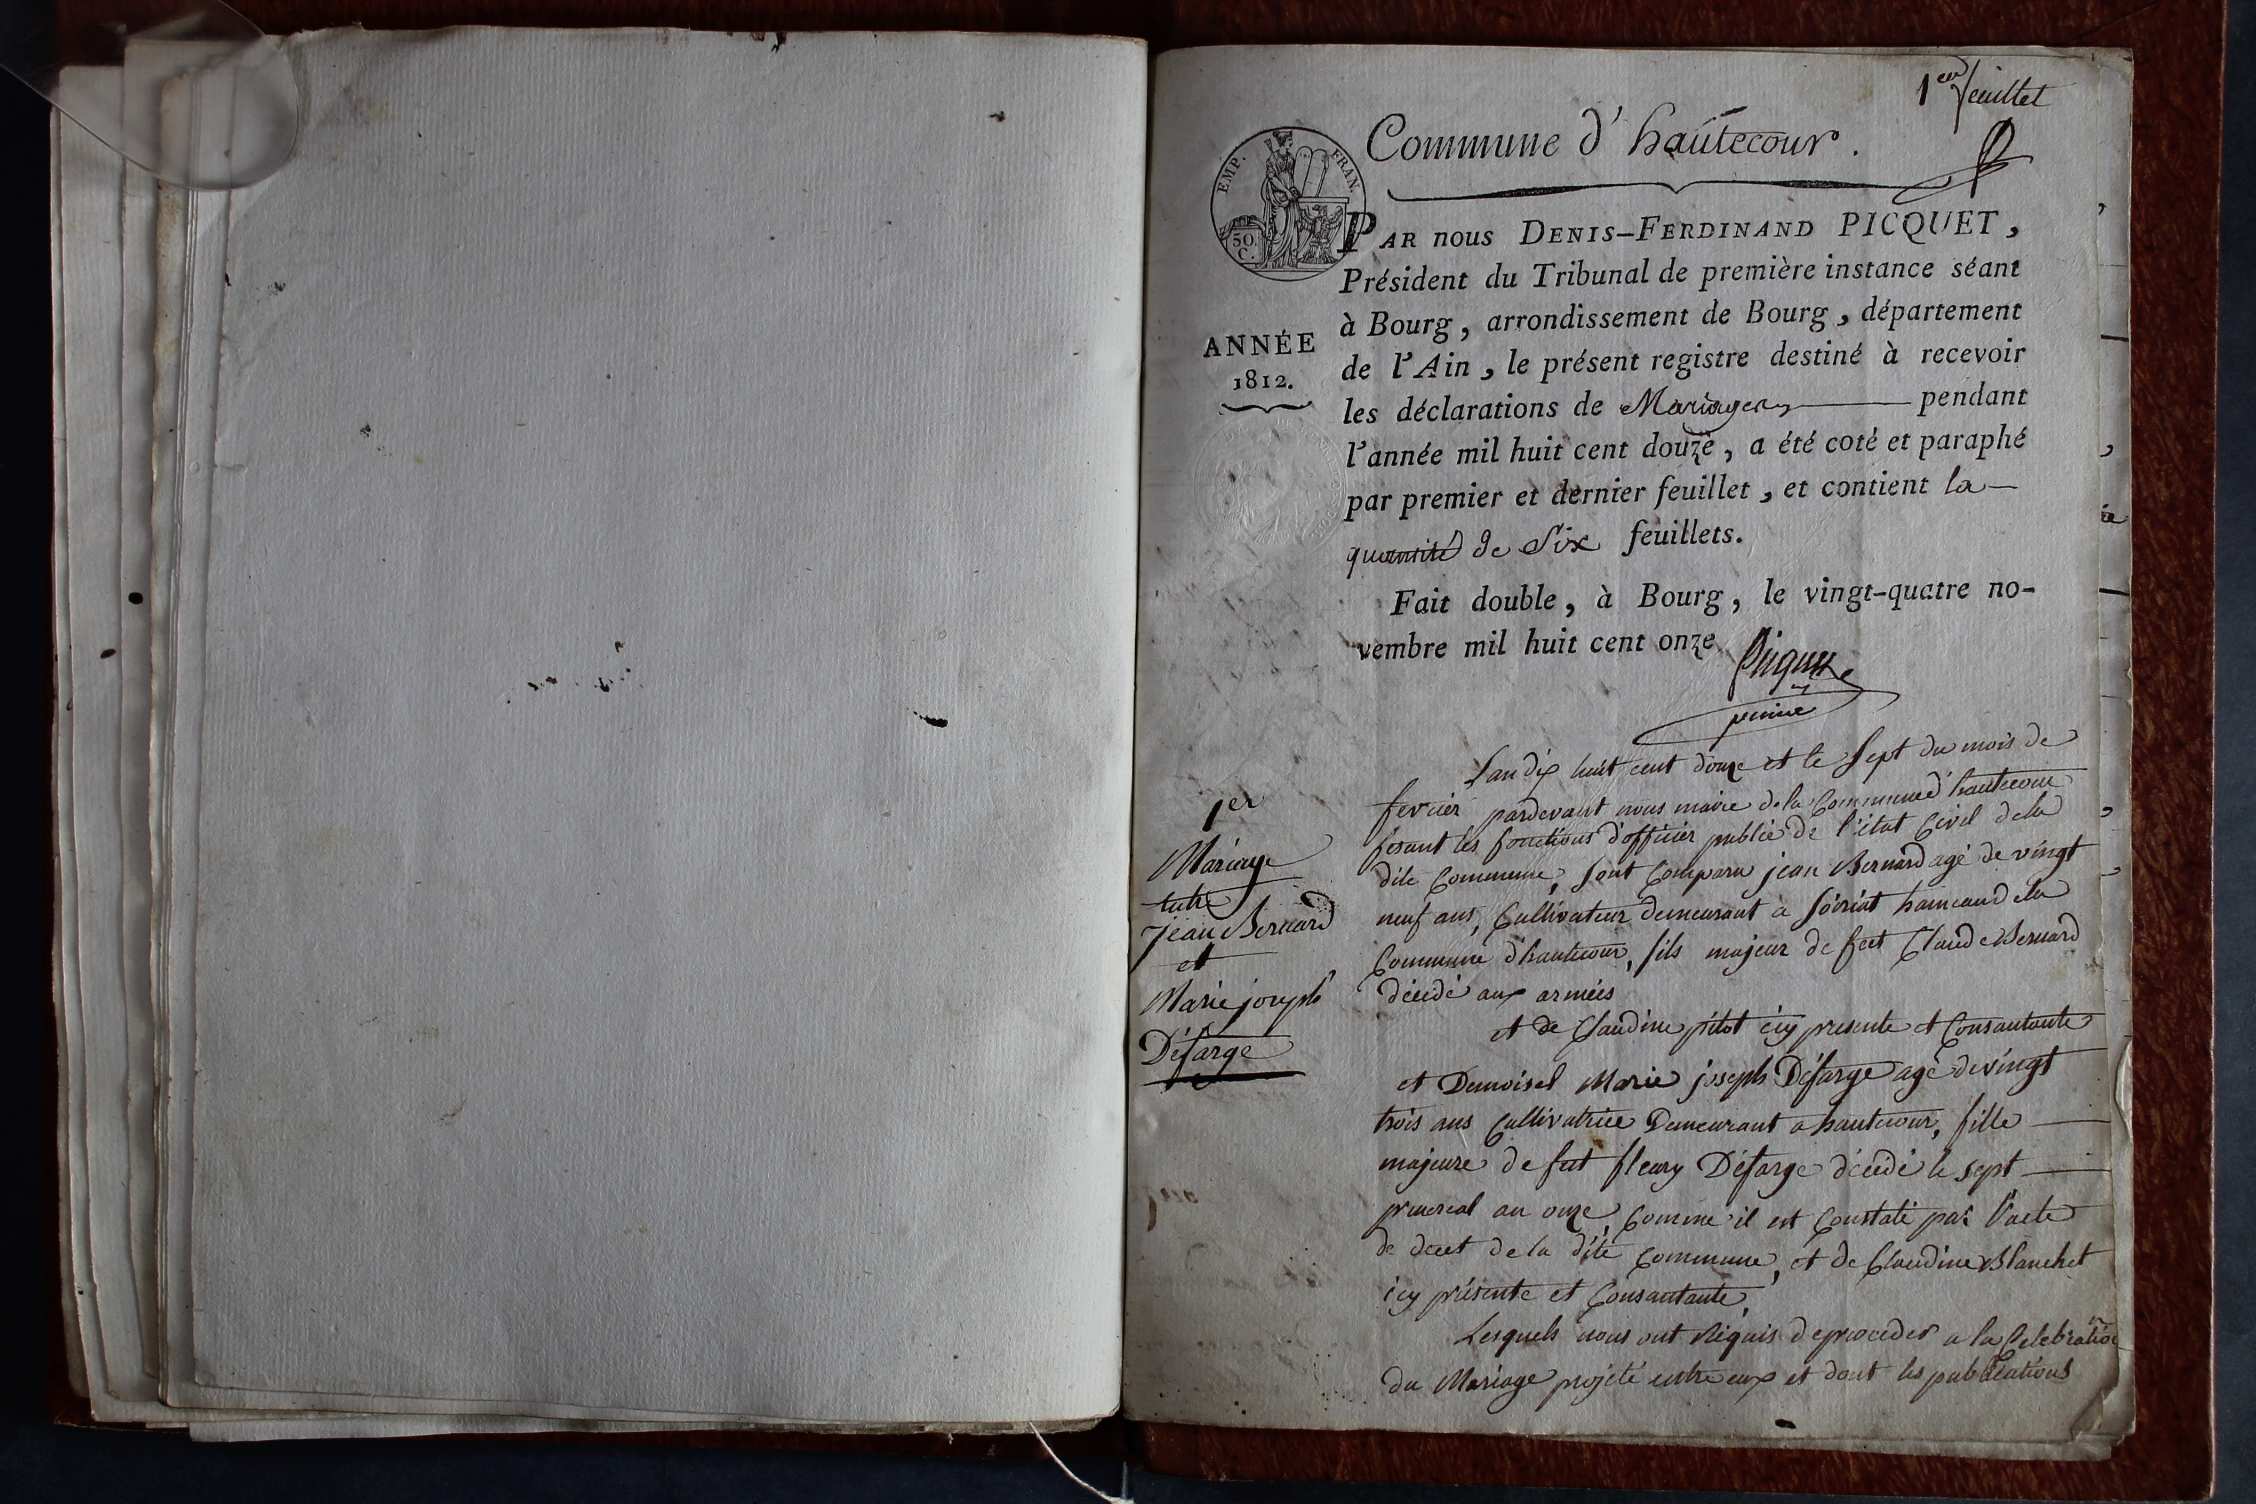 1er feuillet
Commune d'hautecour.
EMP. FRAN.
50 C.
PAR nous DENIS-FERDINAND PICQUET,
Président du Tribunal de première instance séant
à Bourg, arrondissement de Bourg, département
de l'Ain, le présent registre destiné à recevoir
les déclarations de Mariages pendant
l'année mil huit cent douze, a été coté et paraphé
par premier et dernier feuillet, et contient la
quantité de Six feuillets.
Fait double, à Bourg, le vingt-quatre no-
vembre mil huit cent onze
Picquet
ANNÉE
1812.
1er
Mariage
entre
Jean Bernard
et
Marie joseph
Défarge
Lan dix huit cent douze et le Sept du mois de
fevrier pardevant nous maire de la Commune d'hautecour
fesant les fonctions d'officier public de l'état Civil de la
dite Commune, Sont Comparu jean Bernard agé de vingt
neuf ans, Cultivateur demeurant a Soiriat hameau de la
Commune d'hautecour, fils majeur de feut Claude Bernard
décédé aux armées
et de Claudine pitot icy presente et Consantante
et Demoisel Marie joseph Défarge agé de vingt
trois ans Cultivatrice Demeurant a hautecour, fille
majeure de feut fleury Défarge décédé le sept
prucreal an onze, Comme il est Constaté par l'acte
de decet de la dite Commune, et de Claudine Blanchet
icy présente et Consantante,
Lesquels nous ont Requis de proceder a la Celebration
du Mariage projeté entre eux et dont les publications